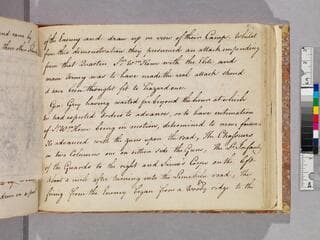 of the Enemy and draw up in view of their Camp. Whilst
from this demonstration they presumed an attack impending
from that Quarter Sr. Wm Howe with the Elite, and
main Army was to have made the real attack should
it have been thought fit to hazard one.
Gn. Grey having waited far beyond the hour at which
he had expected orders to advance, or to have intimation
of Sr. Wm Howe being in motion, determined to move forward
He advanced with the guns upon the road, The Chasseurs
in two Columns one on either side the Guns, The Lt. Infantry
of the Guards to the right and Simcoe's Corps on the left.
About a mile after turning into the Limekiln road, the
firing from the Enemy began from a Woody ridge to the